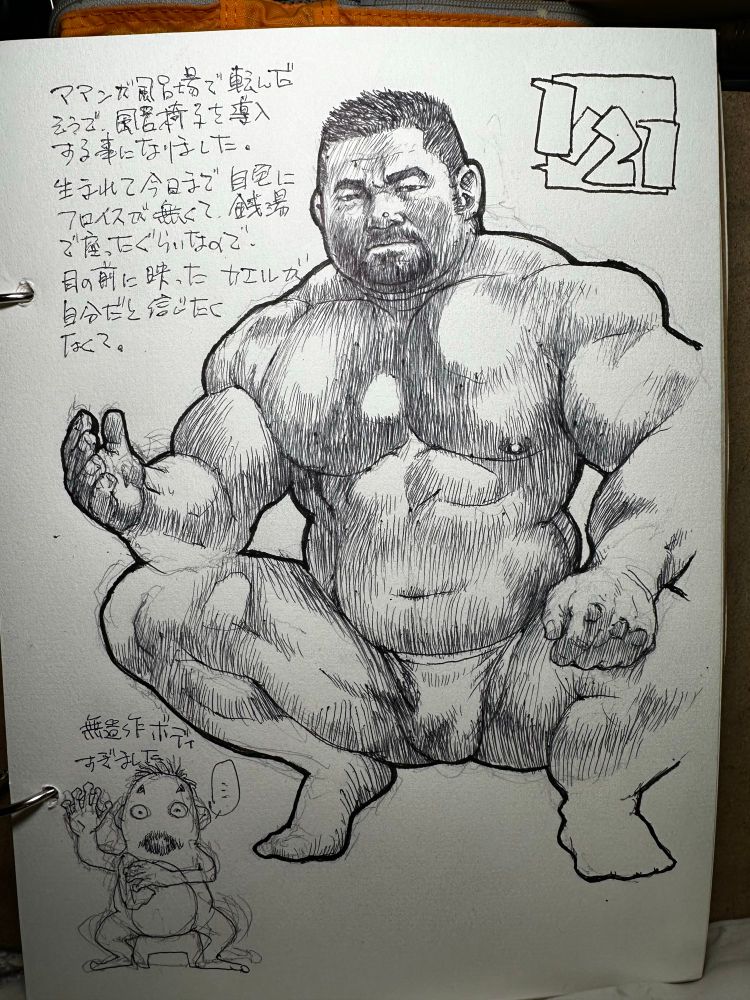 ママンが風呂場で転んだ
そうで、風呂椅子を導入
する事になりました。
生まれて今日まで自宅に
フロイスが無くて、銭湯
で座ったぐらいなので、
目の前に映ったカエルが
自分だと信じたく
なくて。
1/21
無造作ボディ
すぎました